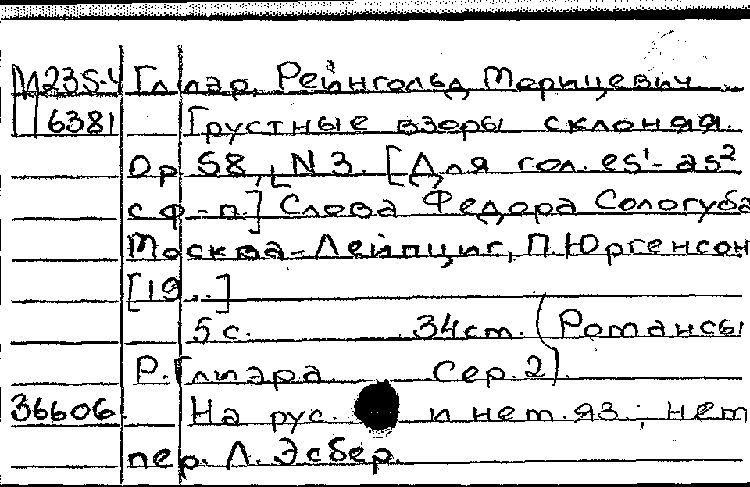 М235-4 Глиэр, Рейнгольд Морицевич
П 6381 Грустные взоры склоняя.
Op 58, N 3. [Для гол. es¹- as²
с ф-п.] Слова Федора Сологуба
Москва-Лейпциг, П. Юргенсон
[19..]
5 с. 34 см. (Романсы
Р. Глиэра Сер. 2).
36606 На рус. и нем. яз; нем
пер. Л. Эсбер.